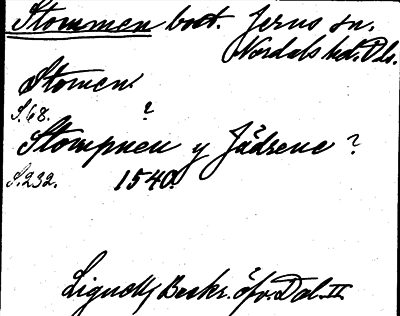 Stommen bost. Jerns sn.
Nordals hd. Dls.
Stomen
S. 68. ?
Stompnen y Jädrene ?
S. 232. 1540.
Lignell, Beskr. öfv. Dal. II